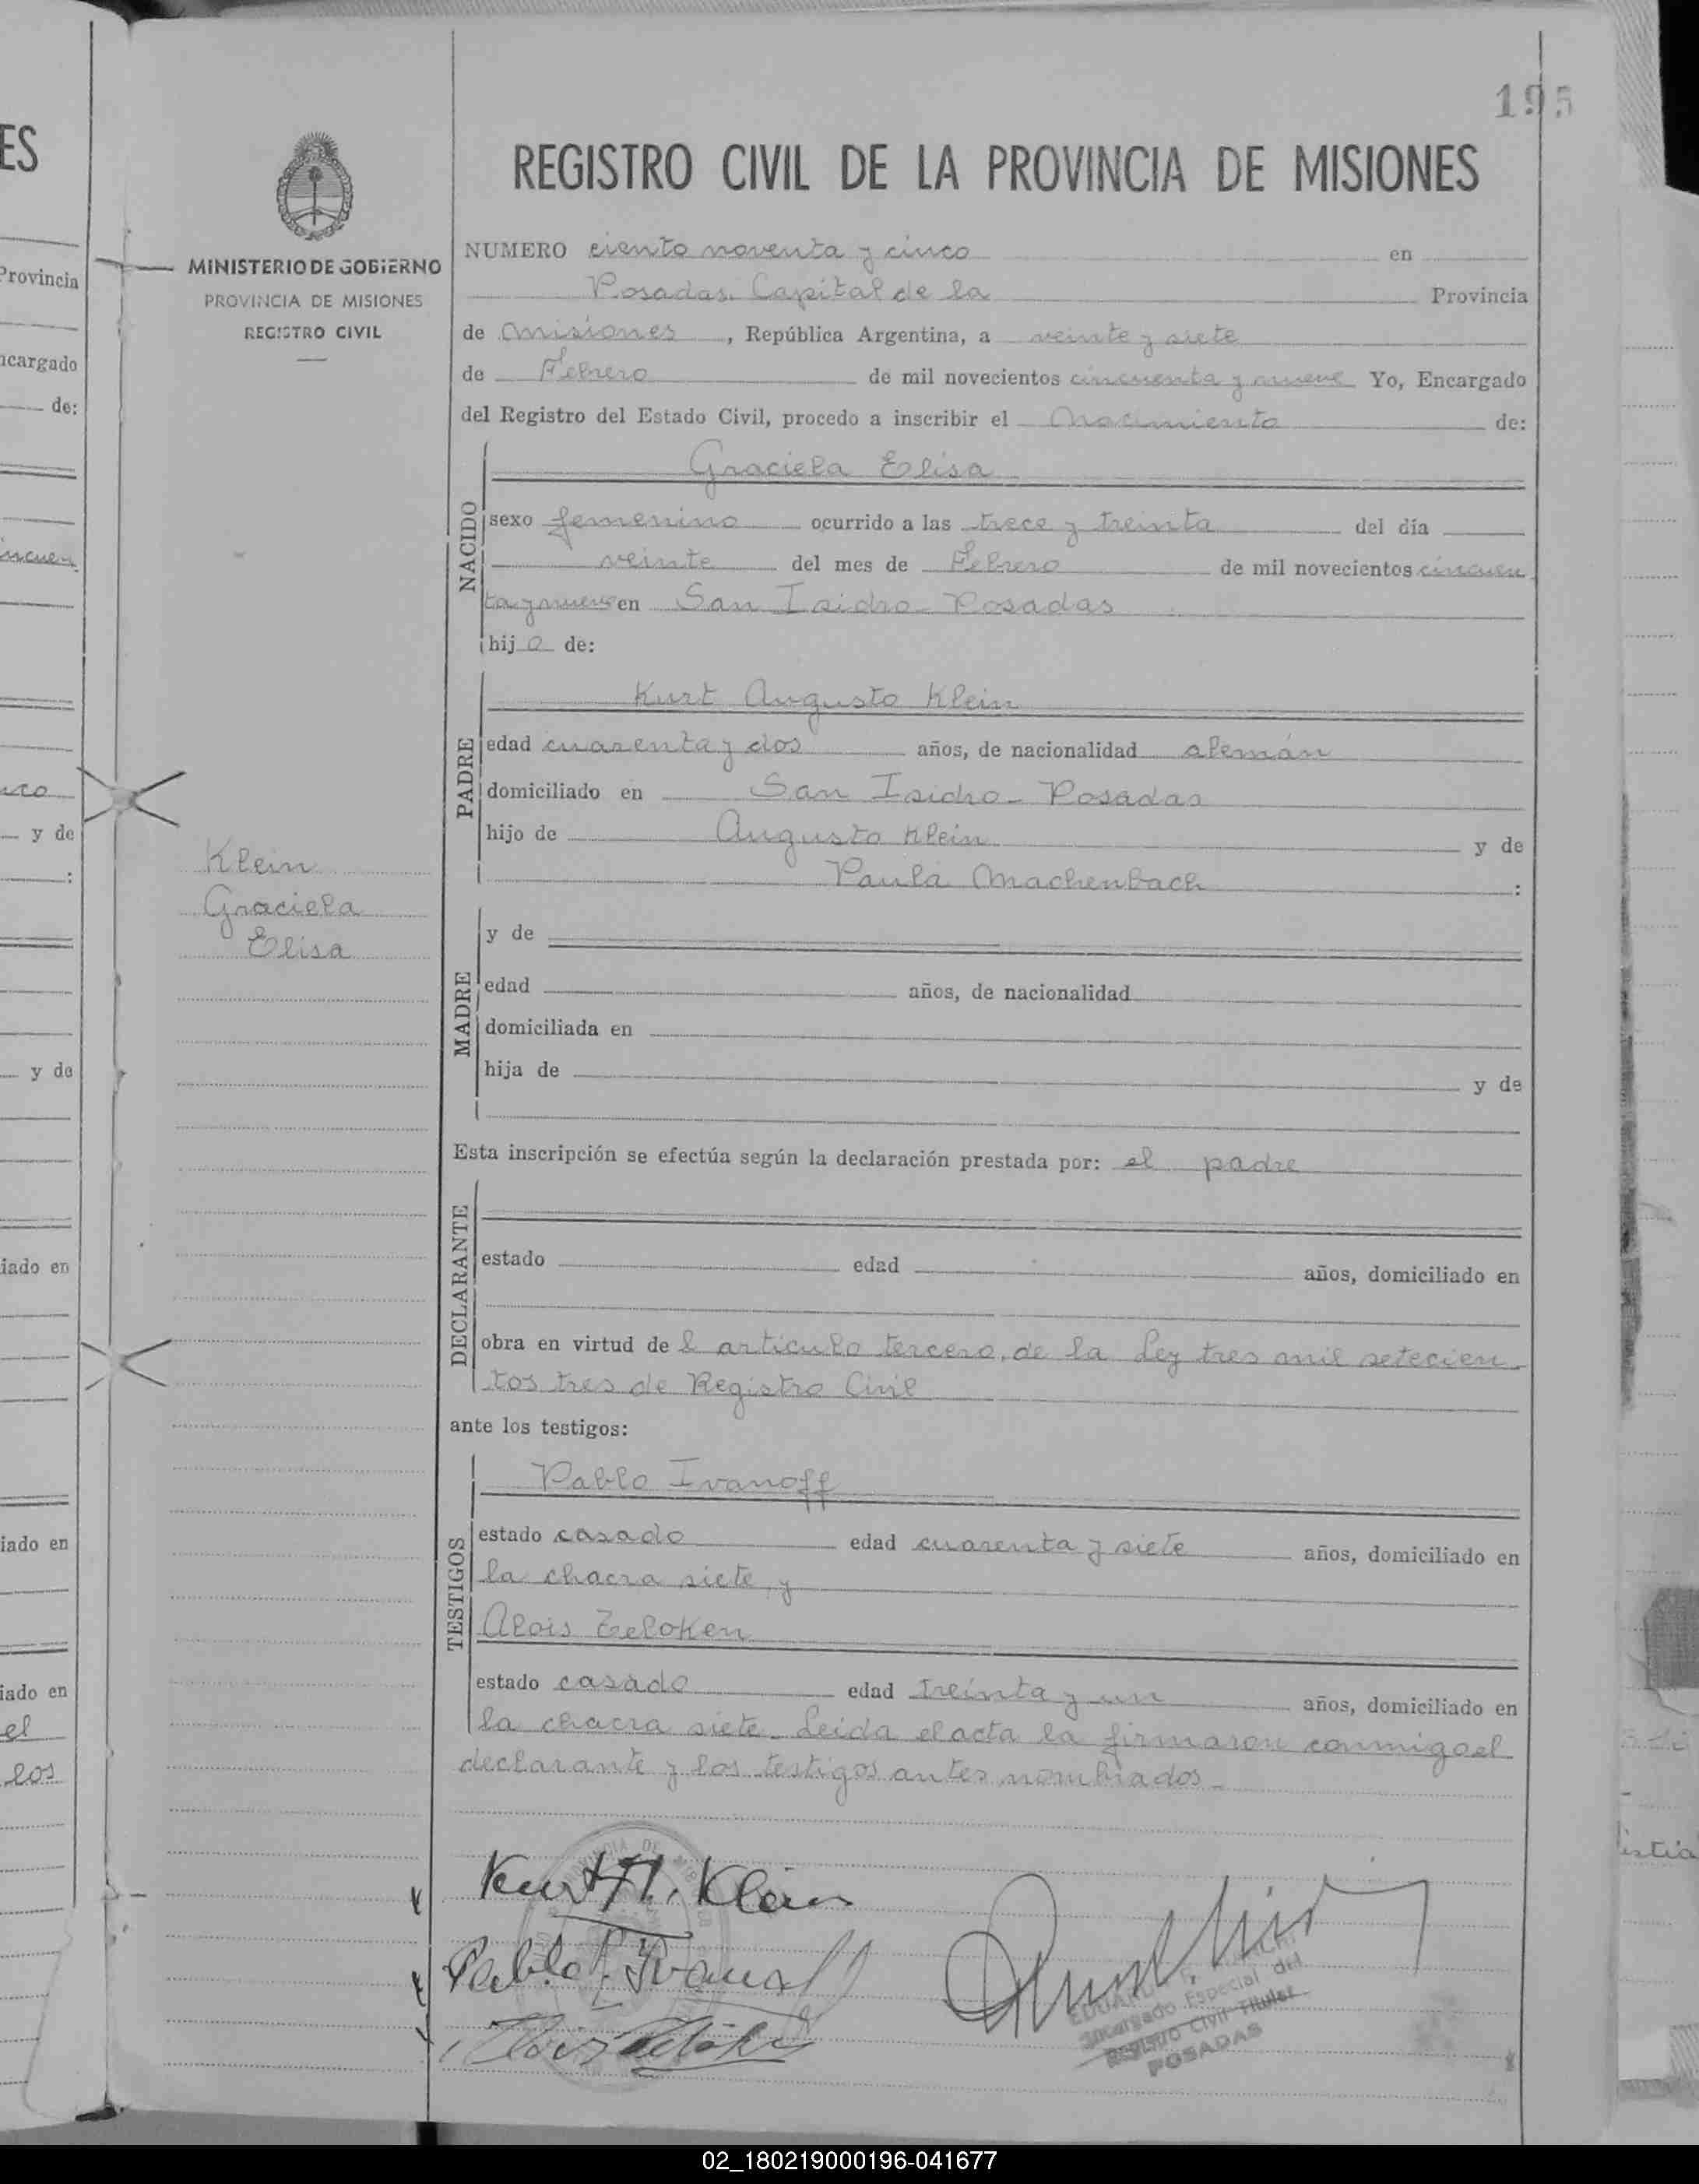 195
REGISTRO CIVIL DE LA PROVINCIA DE MISIONES
MINISTERIO DE GOBIERNO
PROVINCIA DE MISIONES
REGISTRO CIVIL
NUMERO ciento noventa y cinco en
Posadas. Capital de la Provincia
de Misiones, República Argentina, a veinte y siete
de Febrero de mil novecientos cincuenta y nueve Yo, Encargado
del Registro del Estado Civil, procedo a inscribir el Nacimiento de:
NACIDO
Graciela Elisa
sexo femenino ocurrido a las trece y treinta del día
veinte del mes de Febrero de mil novecientos cincuen
ta y nueve en San Isidro - Posadas
hija de:
PADRE
Kurt Augusto Klein
edad cuarenta y dos años, de nacionalidad alemán
domiciliado en San Isidro - Posadas
hijo de Augusto Klein y de
Paula Machenbach :
Klein
Graciela
Elisa
MADRE
y de
edad años, de nacionalidad
domiciliada en
hija de y de
Esta inscripción se efectúa según la declaración prestada por: el padre
DECLARANTE
estado edad años, domiciliado en
obra en virtud de l artículo tercero, de la Ley tres mil setecien
tos tres de Registro Civil
ante los testigos:
TESTIGOS
Pablo Ivanoff
estado casado edad cuarenta y siete años, domiciliado en
la chacra siete, y
Alois Zeloken
estado casado edad treinta y un años, domiciliado en
la chacra siete - Leida el acta la firmaron conmigo el
declarante y los testigos antes nombrados -
Kurt A. Klein
Pablo Ivanoff
Encargado Especial del
Registro Civil Titular
POSADAS
ES
Provincia
ncargado
de:
ncuen
y de
:
y de
iado en
iado en
iado en
el
los
02_180219000196-041677